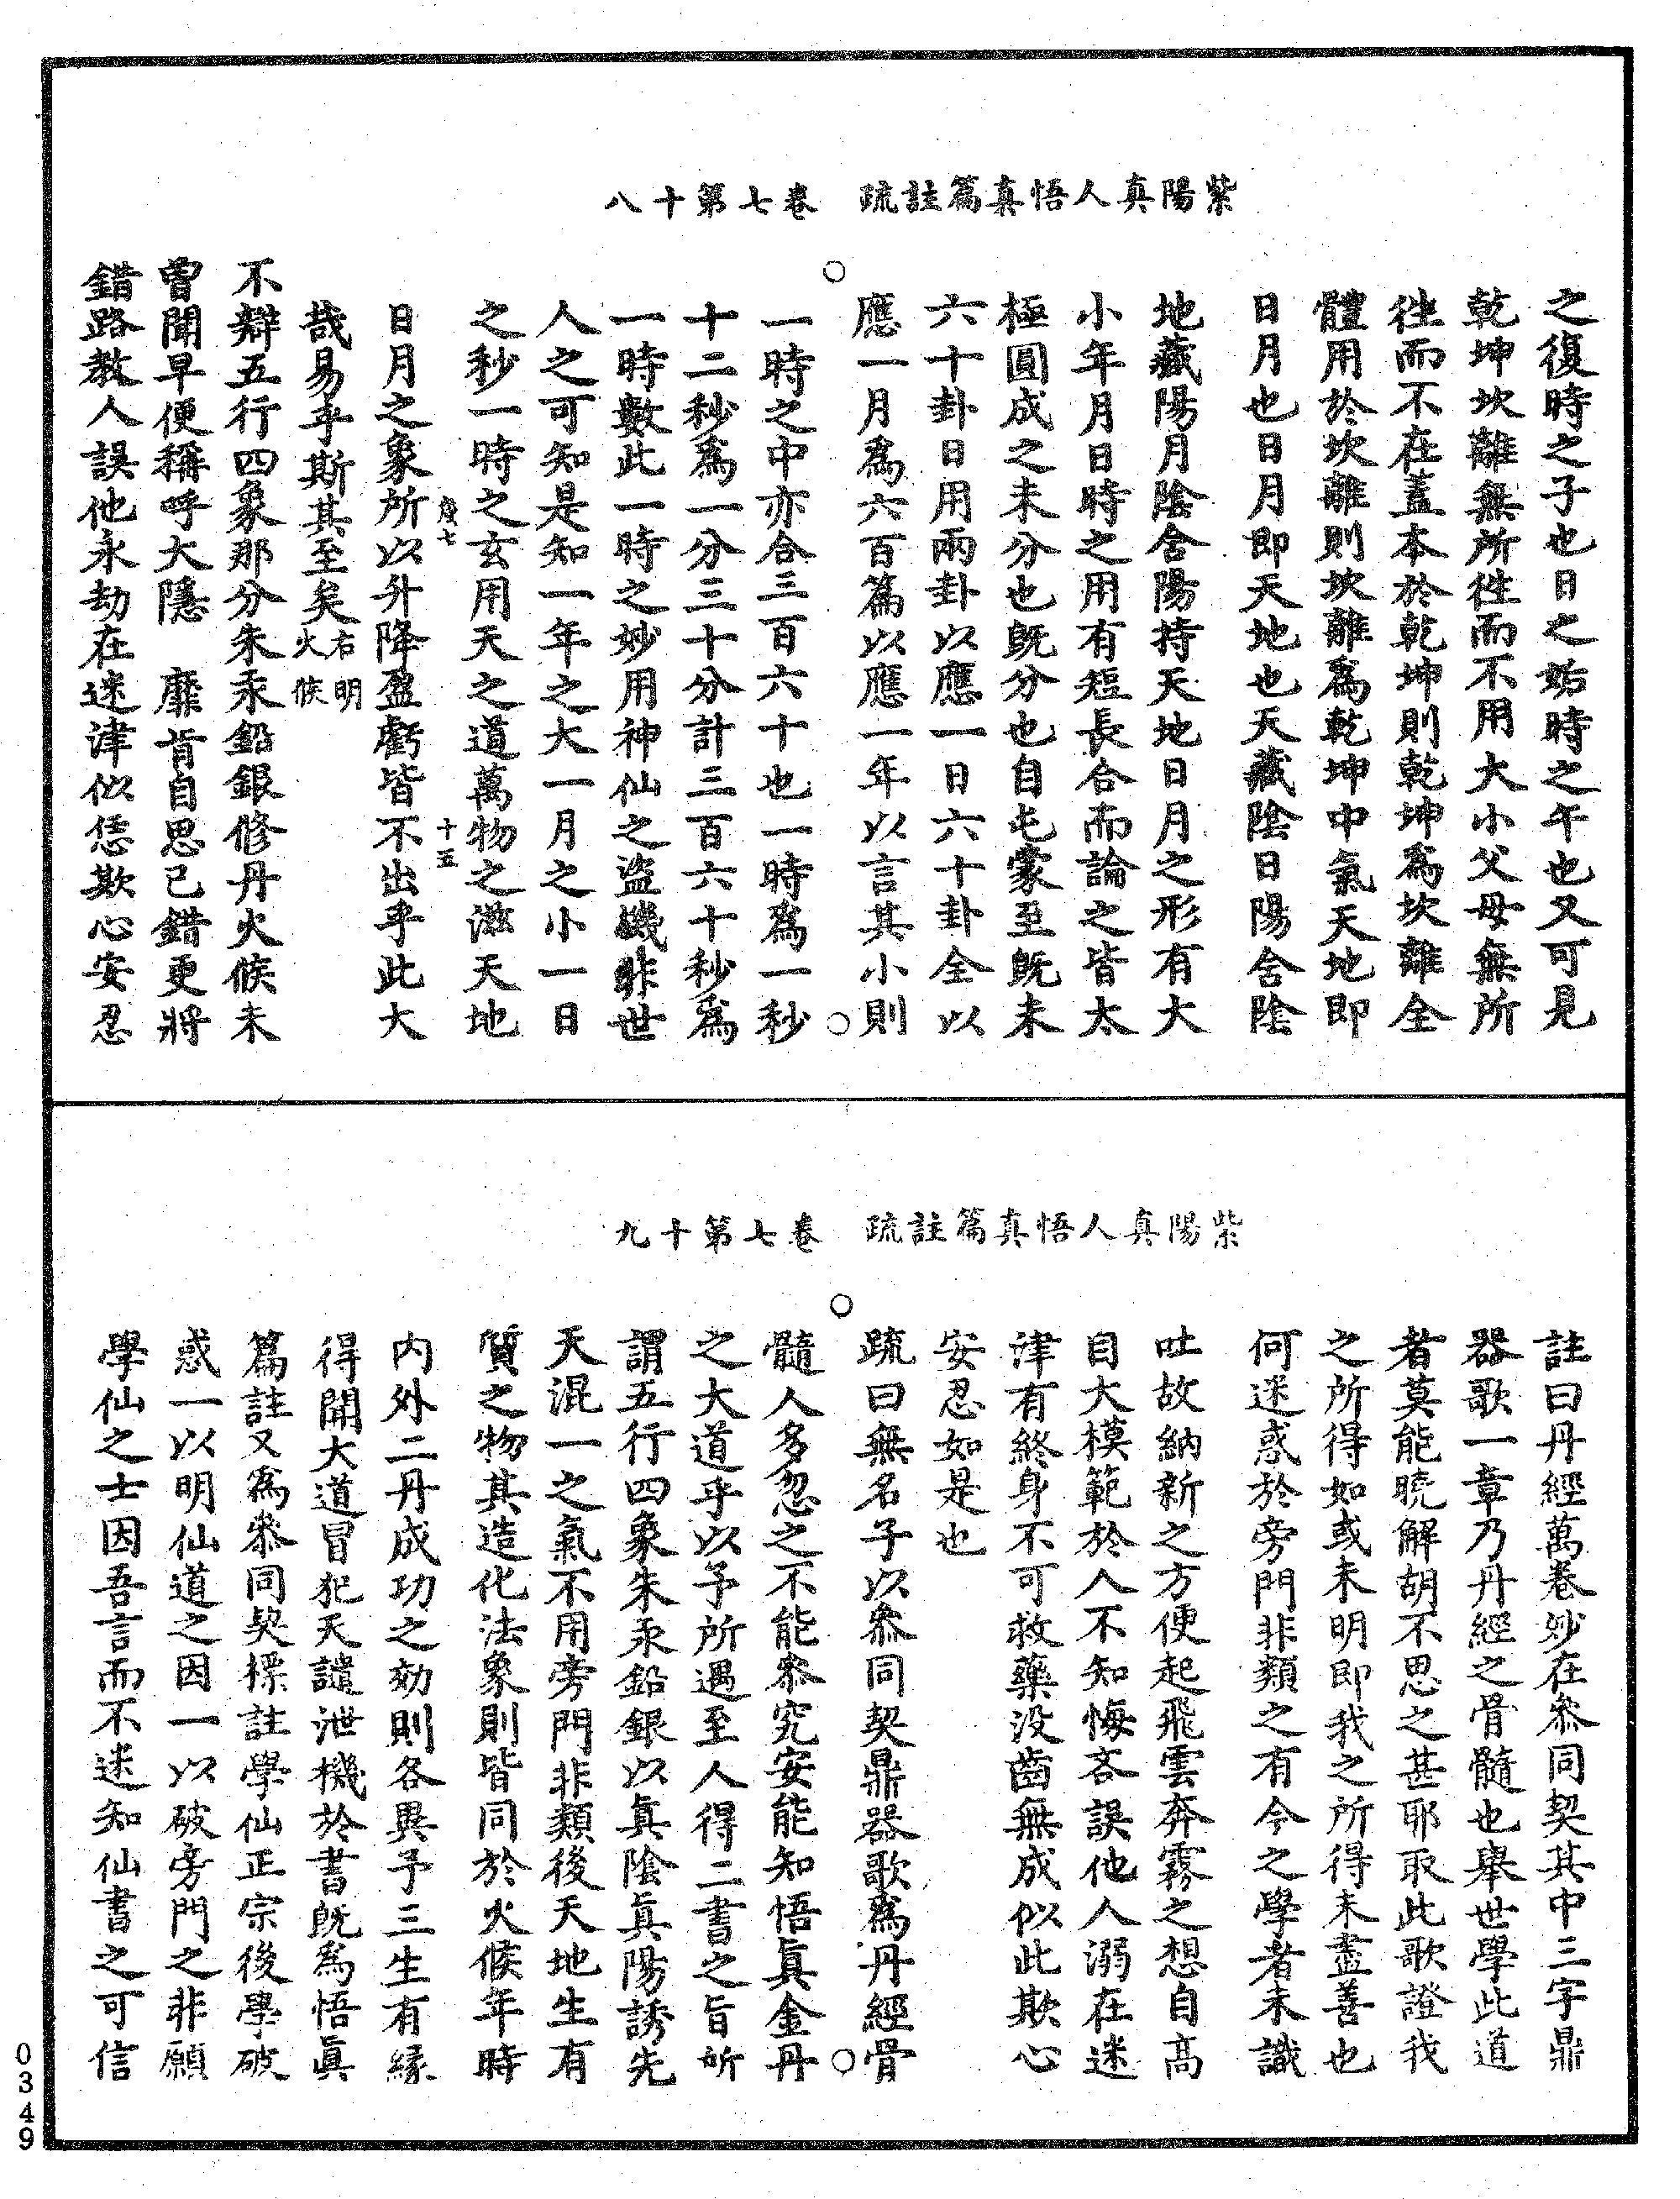 紫陽真人悟真篇註疏 卷七第十八
之復時之子也日之姤時之午也又可見
乾坤坎離無所往而不用大小父母無所
往而不在蓋本於乾坤則乾坤為坎離全
體用於坎離則坎離為乾坤中氣天地即
日月也日月即天地也天藏陰日陽含陰
地藏陽月陰含陽持天地日月之形有大
小年月日時之用有短長合而論之皆太
極圓成之未分也既分也自屯蒙至既未
六十卦日用兩卦以應一日六十卦全以
應一月為六百篇以應一年以言其小則
一時之中亦合三百六十也一時為一秒
十二秒為一分三十分計三百六十秒為
一時數此一時之妙用神仙之盜機非世
人之可知是知一年之大一月之小一日
之秒一時之玄用天之道萬物之滋天地
度七 十五
日月之象所以升降盈虧皆不出乎此大
哉易乎斯其至矣右明火候
不辯五行四象那分朱汞鉛銀修丹火候未
曾聞早便稱呼大隱 靡肯自思己錯更將
錯路教人誤他永劫在迷津似恁欺心安忍
紫陽真人悟真篇註疏 卷七第十九
註曰丹經萬卷妙在叅同契其中三字鼎
器歌一章乃丹經之骨髓也舉世學此道
者莫能曉解胡不思之甚耶取此歌證我
之所得如或未明即我之所得未盡善也
何迷惑於旁門非類之有今之學者未識
吐故納新之方便起飛雲奔霧之想自高
自大模範於人不知悔吝誤他人溺在迷
津有終身不可救藥没齒無成似此欺心
安忍如是也
疏曰無名子以叅同契鼎器歌為丹經骨
髓人多忽之不能叅究安能知悟真金丹
之大道乎以予所遇至人得二書之旨所
謂五行四象朱汞鉛銀以真陰真陽誘先
天混一之氣不用旁門非類後天地生有
質之物其造化法象則皆同於火候年時
内外二丹成功之効則各異予三生有緣
得聞大道冒犯天譴泄機於書既為悟真
篇註又為叅同契摽註學仙正宗後學破
惑一以明仙道之因一以破旁門之非願
學仙之士因吾言而不迷知仙書之可信
0349